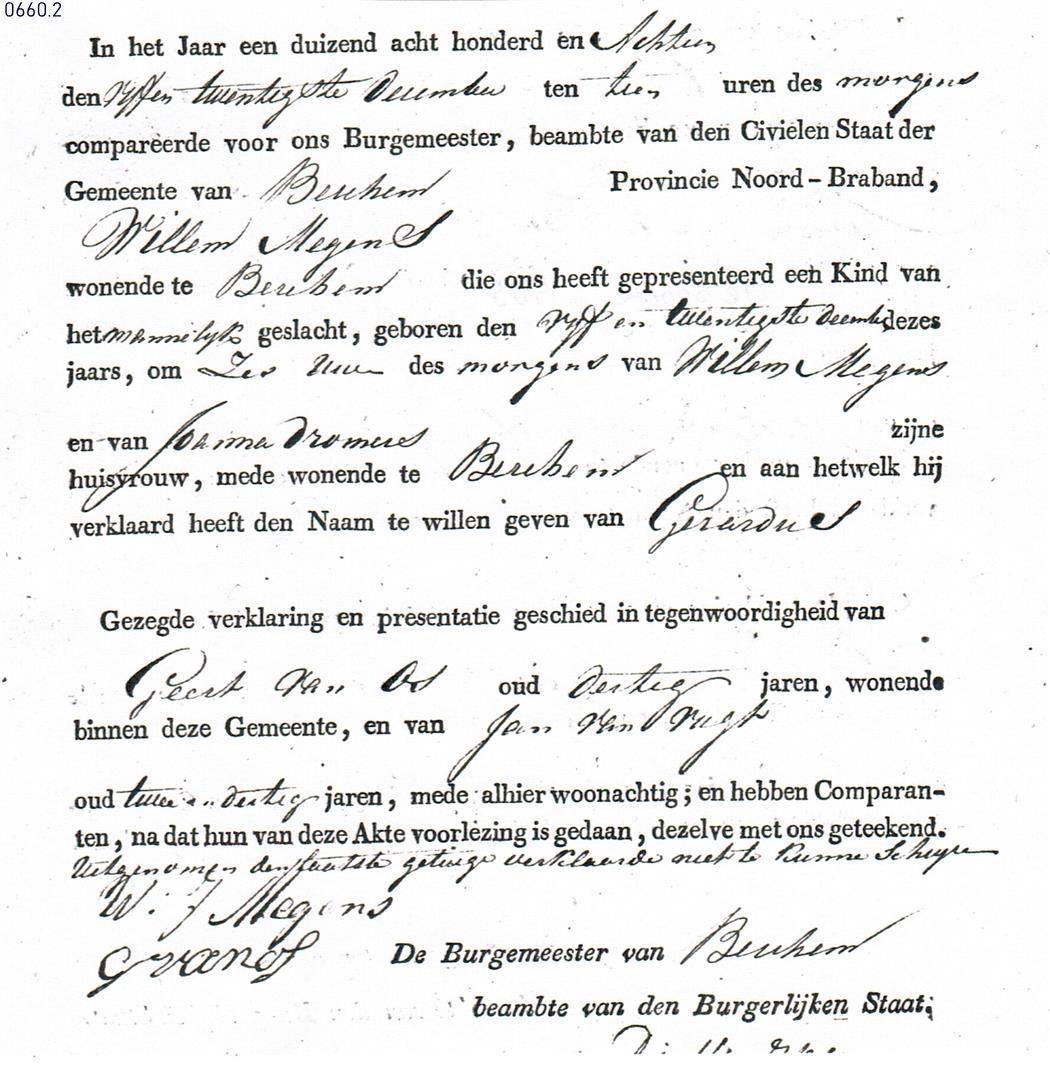 0660.2
In het Jaar een duizend acht honderd en Achtien
den vyf en twentigste December ten tien uren des morgens
compareerde voor ons Burgemeester, beambte van den Civielen Staat der
Gemeente van Berchem Provincie Noord-Braband,
Willem Megens
wonende te Berchem die ons heeft gepresenteerd een Kind van
het mannelyk geslacht, geboren den vyf en twentigste decemb dezes
jaars, om Zes Uure des morgens van Willem Megens
en van Joanna Dromers zijne
huisvrouw, mede wonende te Berchem en aan hetwelk hij
verklaard heeft den Naam te willen geven van Gerardus
Gezegde verklaring en presentatie geschied in tegenwoordigheid van
Geert van Os oud dertig jaren, wonende
binnen deze Gemeente, en van Jan van Vugt
oud twee en dertig jaren, mede alhier woonachtig; en hebben Comparan-
ten, na dat hun van deze Akte voorlezing is gedaan, dezelve met ons geteekend.
Uitgenomen den laatste getuige verklaarde niet te kunne Schryve
W. J Megens
G van os
De Burgemeester van Berchem
beambte van den Burgerlijken Staat;